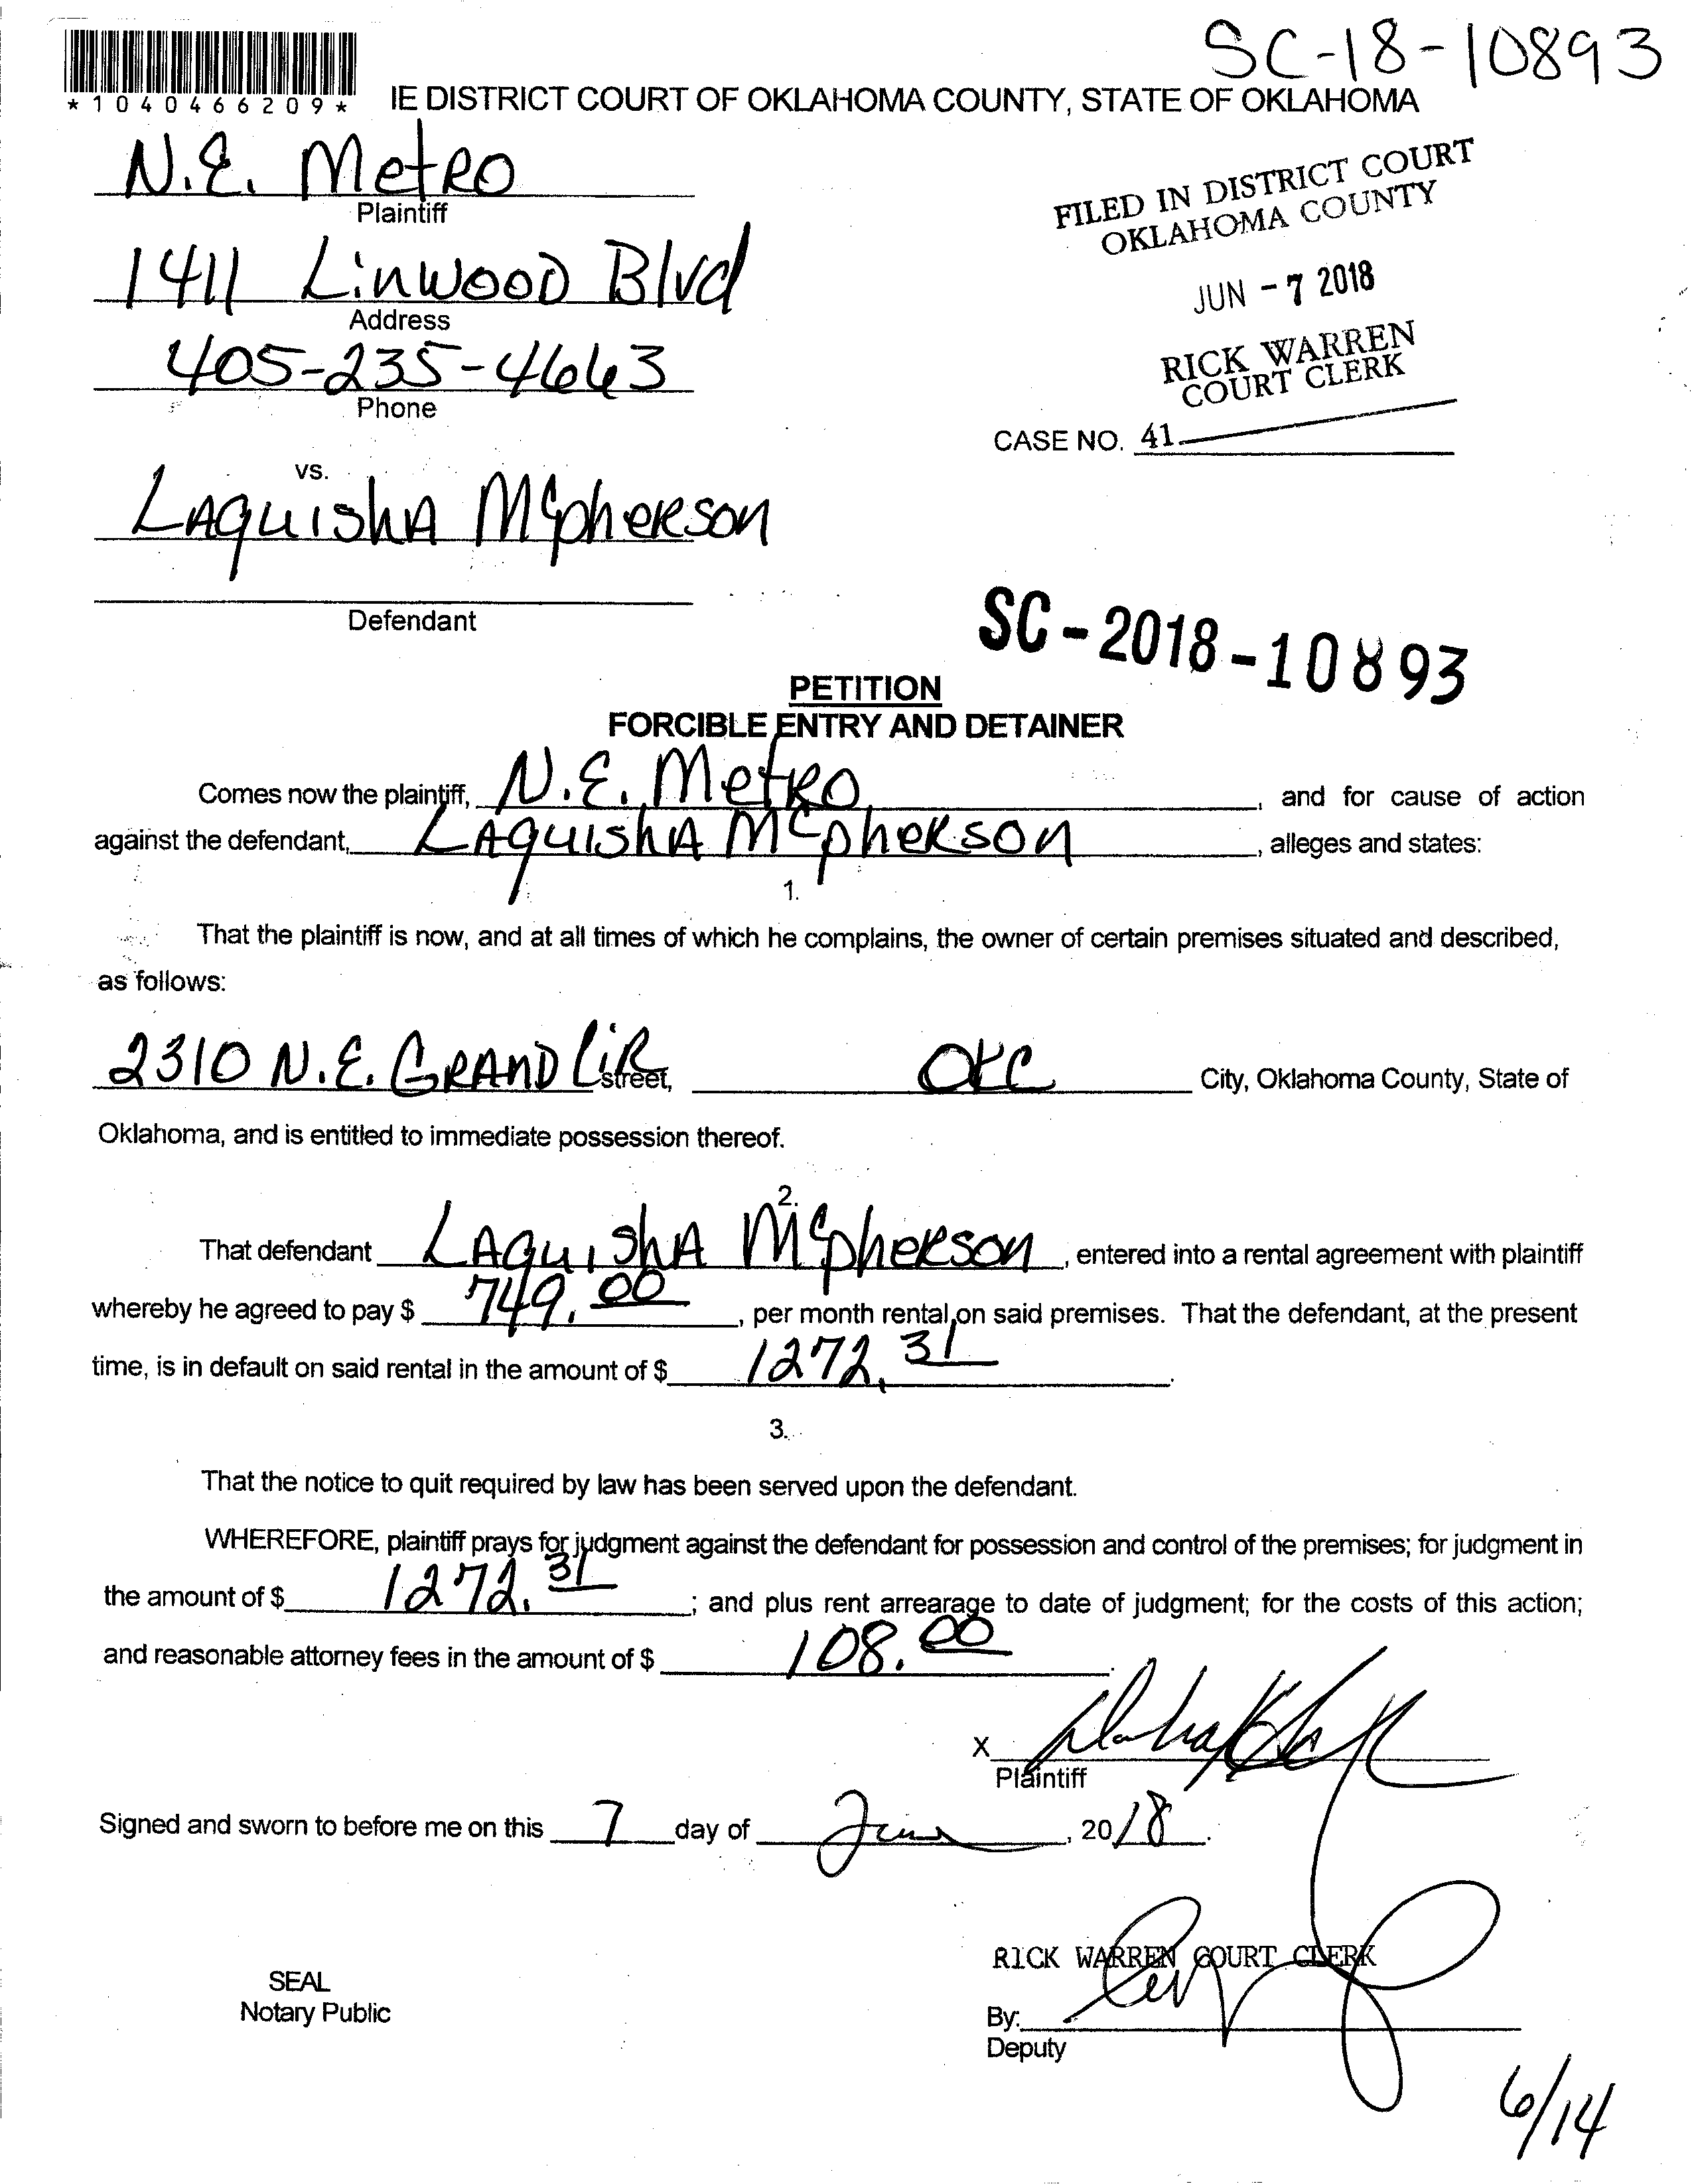 SC-18-10893
*1040466209*
IE DISTRICT COURT OF OKLAHOMA COUNTY, STATE OF OKLAHOMA
N.E. Metro
Plaintiff
1411 Linwood Blvd
Address
405-235-4663
Phone
FILED IN DISTRICT COURT
OKLAHOMA COUNTY
JUN - 7 2018
RICK WARREN
COURT CLERK
CASE NO. 41
vs.
LAquishA McpheRson
Defendant
SC-2018-10893
PETITION
FORCIBLE ENTRY AND DETAINER
Comes now the plaintiff, N.E. MetRo, and for cause of action
against the defendant, LAquishA McpheRson, alleges and states:
1.
That the plaintiff is now, and at all times of which he complains, the owner of certain premises situated and described,
as follows:
2310 N.E. GRAND CiR street, OKC City, Oklahoma County, State of
Oklahoma, and is entitled to immediate possession thereof.
2.
That defendant LAquishA McpheRson, entered into a rental agreement with plaintiff
whereby he agreed to pay $ 749.00, per month rental on said premises. That the defendant, at the present
time, is in default on said rental in the amount of $ 1272.31.
3.
That the notice to quit required by law has been served upon the defendant.
WHEREFORE, plaintiff prays for judgment against the defendant for possession and control of the premises; for judgment in
the amount of $ 1272.31; and plus rent arrearage to date of judgment; for the costs of this action;
and reasonable attorney fees in the amount of $ 108.00.
X
Plaintiff
Signed and sworn to before me on this 7 day of June, 2018.
RICK WARREN COURT CLERK
SEAL
Notary Public
By:
Deputy
6/14